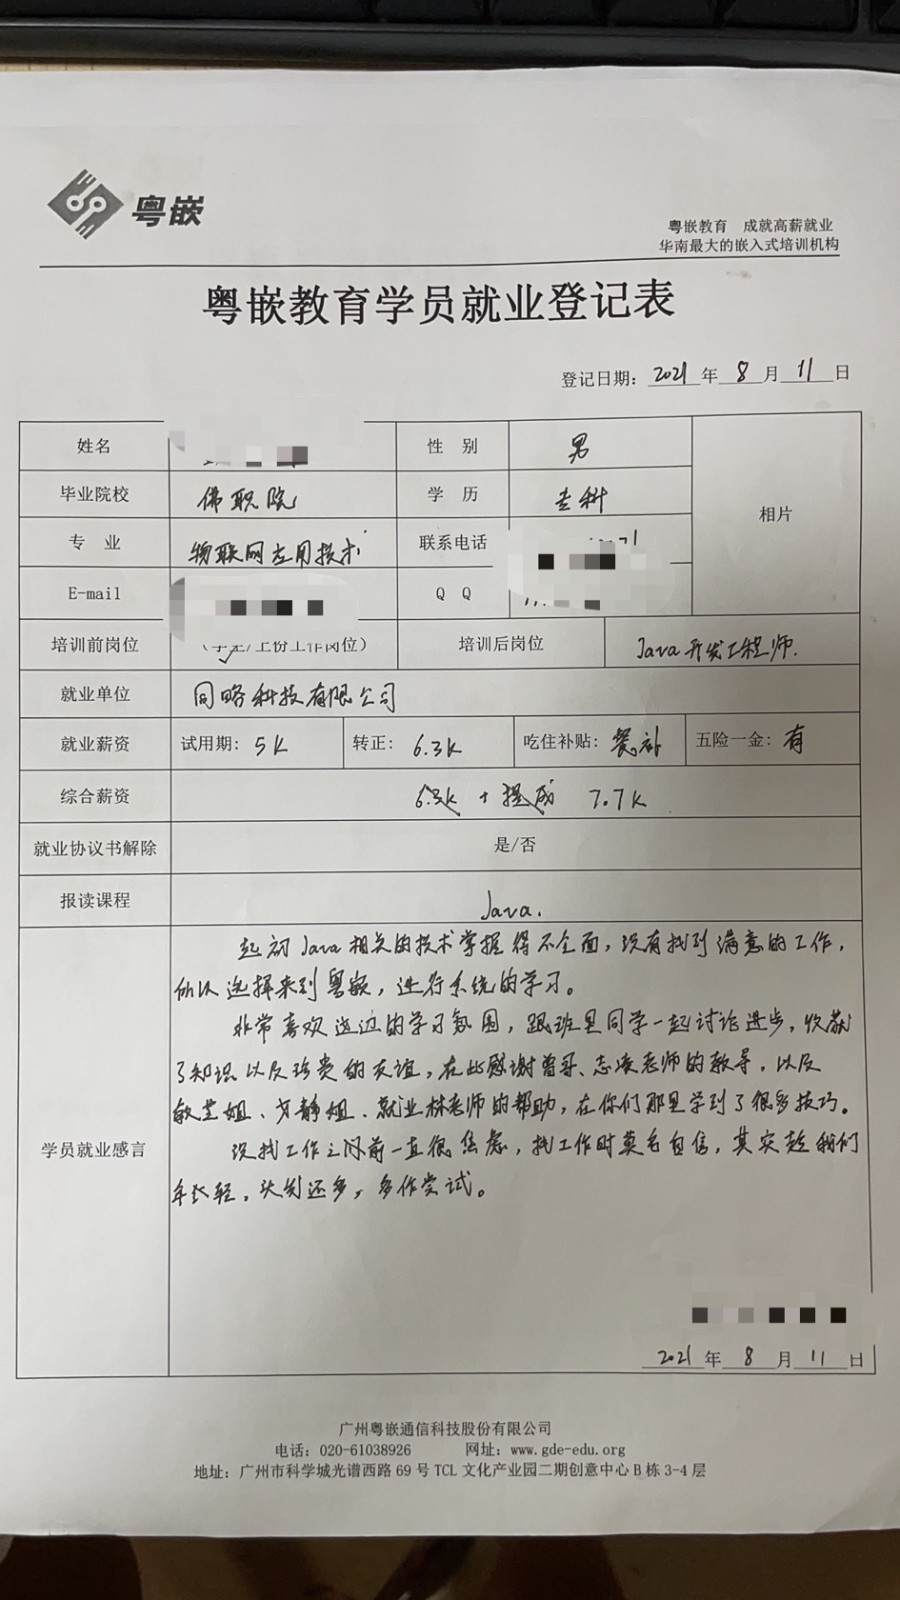 粤嵌
粤嵌教育 成就高薪就业
华南最大的嵌入式培训机构
粤嵌教育学员就业登记表
登记日期: 2021 年 8 月 11 日
姓名 性 别 男 相片
毕业院校 佛职院 学 历 专科
专 业 物联网应用技术 联系电话
E-mail Q Q
培训前岗位 (学生/上份工作岗位) 培训后岗位 Java开发工程师.
就业单位 同略科技有限公司
就业薪资 试用期: 5K 转正: 6.3K 吃住补贴: 餐补 五险一金: 有
综合薪资 6.3k + 提成 7.7K
就业协议书解除 是/否
报读课程 Java.
起初Java相关的技术掌握得不全面,没有找到满意的工作,
所以选择来到粤嵌,进行系统的学习。
非常喜欢这边的学习氛围,跟班里同学一起讨论进步,收获
了知识以及珍贵的友谊,在此感谢曾哥、志凌老师的教导,以及
敏芝姐、静姐、就业林老师的帮助,在你们那里学到了很多技巧。
学员就业感言
没找工作之前一直很焦虑,找工作时莫名自信,其实趁我们
年纪轻,头发还多,多作尝试。
2021 年 8 月 11 日
广州粤嵌通信科技股份有限公司
电话: 020-61038926 网址: www.gde-edu.org
地址: 广州市科学城光谱西路 69 号 TCL 文化产业园二期创意中心 B 栋 3-4 层